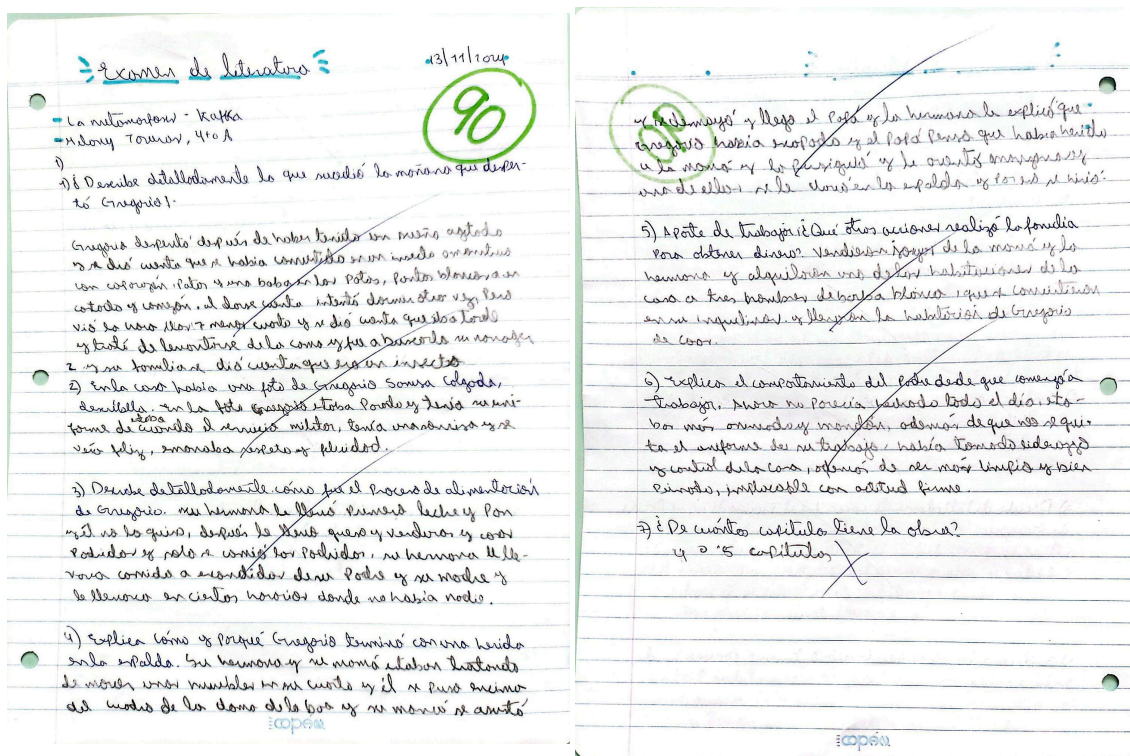 Examen de literatura
13/11/2024
90
- La metamorfosis - Kafka
- Melony Tavarez, 4to A
1)
1) ¿ Describe detalladamente lo que sucedió la mañana que desper-
tó Gregorio!.
Gregorio despertó después de haber tenido un sueño agitado
y se dió cuenta que se había convertido en un insecto monstruo
con caparazón, Patas y una baba en las Patas, Puntos blancos en
costado y comezón, al darse cuenta intentó dormir otra vez, Pero
vió la hora las 7 menos cuarto y se dió cuenta que iba tarde
y trató de levantarse de la cama y fue a buscarlo su manager
2 y su familia se dió cuenta que era un insecto
2) En la casa había una foto de Gregorio Samsa Colgada,
descríbela. En la foto Gregorio estaba Parado y tenía su uni-
forme de cuando estaba el servicio militar, tenía una sonrisa y se
veía feliz, emanaba respeto y felicidad.
3) Describe detalladamente cómo fue el Proceso de alimentación
de Gregorio. su hermana le llevó Primero leche y Pan
y él no lo quiso, después le llevó queso y verduras y cosas
Podridas y solo se comió los Podridos, su hermana le lle-
vava comida a escondidas de su Padre y su madre y
le llevava en ciertos horarios donde no había nadie.
4) Explica cómo y Porqué Gregorio terminó con una herida
en la espalda. Su hermana y su mamá estaban tratando
de mover unos muebles en su cuarto y él se Puso encima
del cuadro de la dama de la boa y su mamá se asustó
copéni
100
y se desmayó y llego el Papá y la hermana le explicó que
Gregorio había escapado y el Papá Penso que había herido
a la mamá y lo Persiguió y le aventó manzanas y
una de ellas se le clavó en la espalda y Por eso se hirió.
5) Aparte de trabajar ¿Qué otras acciones realizó la familia
Para obtener dinero? Vendieron joyas de la mamá y la
hermana y alquilaron una de las habitaciones de la
casa a tres hombres de barba blanca, que se convirtieron
en su inquilinos y llenaron la habitación de Gregorio
de cosas.
6) Explica el comportamiento del Padre desde que comenzó a
trabajar, Ahora no Parecía echado todo el día, esta-
ba más animado y mandón, además de que no se qui-
ta el uniforme de su trabajo, había tomado liderazgo
y control de la casa, además de ser más limpio y bien
Peinado, implacable con actitud firme.
7) ¿De cuántos capitulo tiene la obra?
4 o 5 capítulos
copéni